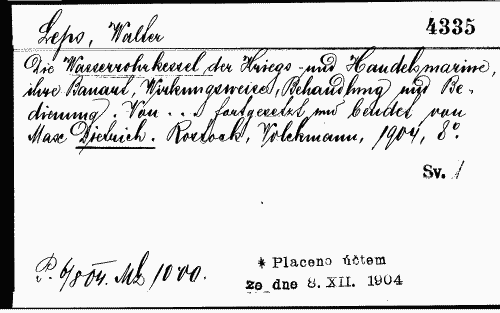 Leps, Walter 4335
Die Wasserrohrkessel der Kriegs- und Handelsmarine,
ihre Bauart, Wirkungsweise, Behandlung und Be-
dienung. Von ... fortgesetzt und beendet von
Max Dietrich. Rostock, Volckmann, 1904, 8°.
Sv. 1
* Placeno účtem
P. 6/8 04. Mk 10·00. ze dne 8. XII. 1904